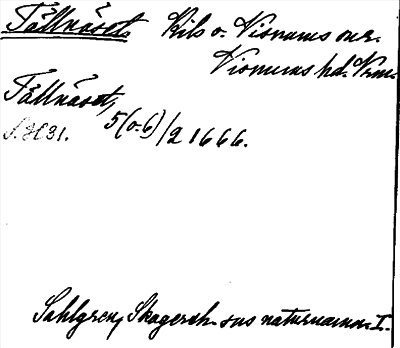 Fällnäset. Kils o. Visnums snr.
Visnums hd. Vrm.
Fällnäset,
5(o.6)/2 1666.
Sahlgren, Skagersh. sns naturnamn. I.